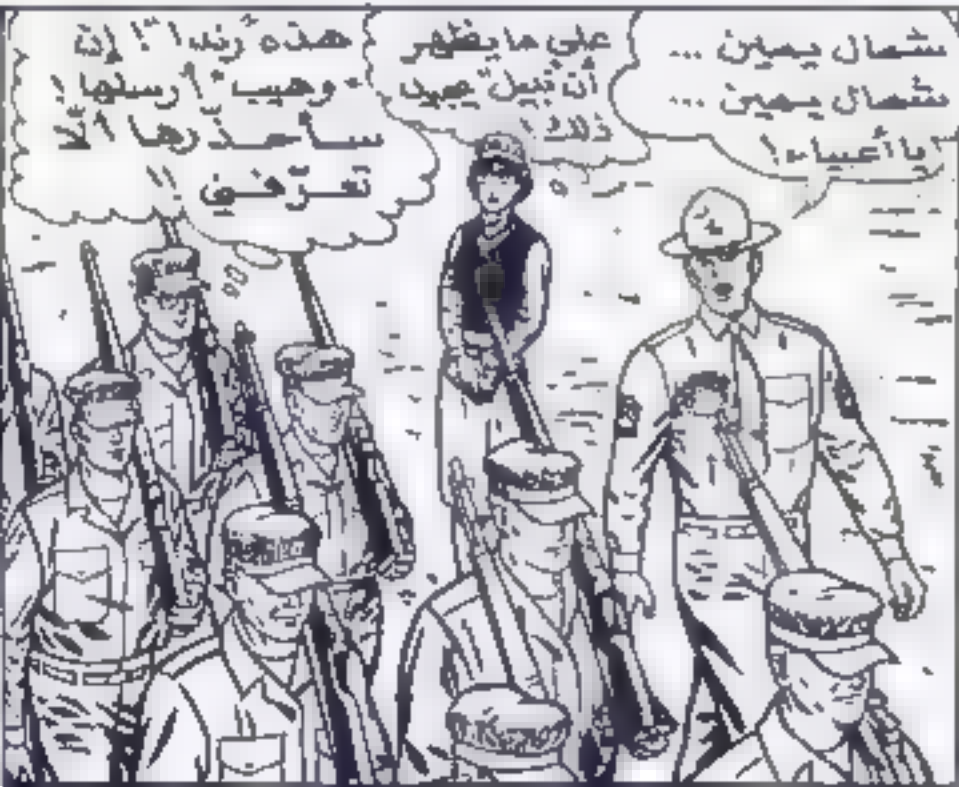 شمال يمين ...
شمال يمين ...
يا أغبياء!
على ما يظهر
أن نبيل يجيد
ذلك!
هذه رندا! إن
وهيب أرسلها!
سأحذّرها ألّا
تعرّفني!!